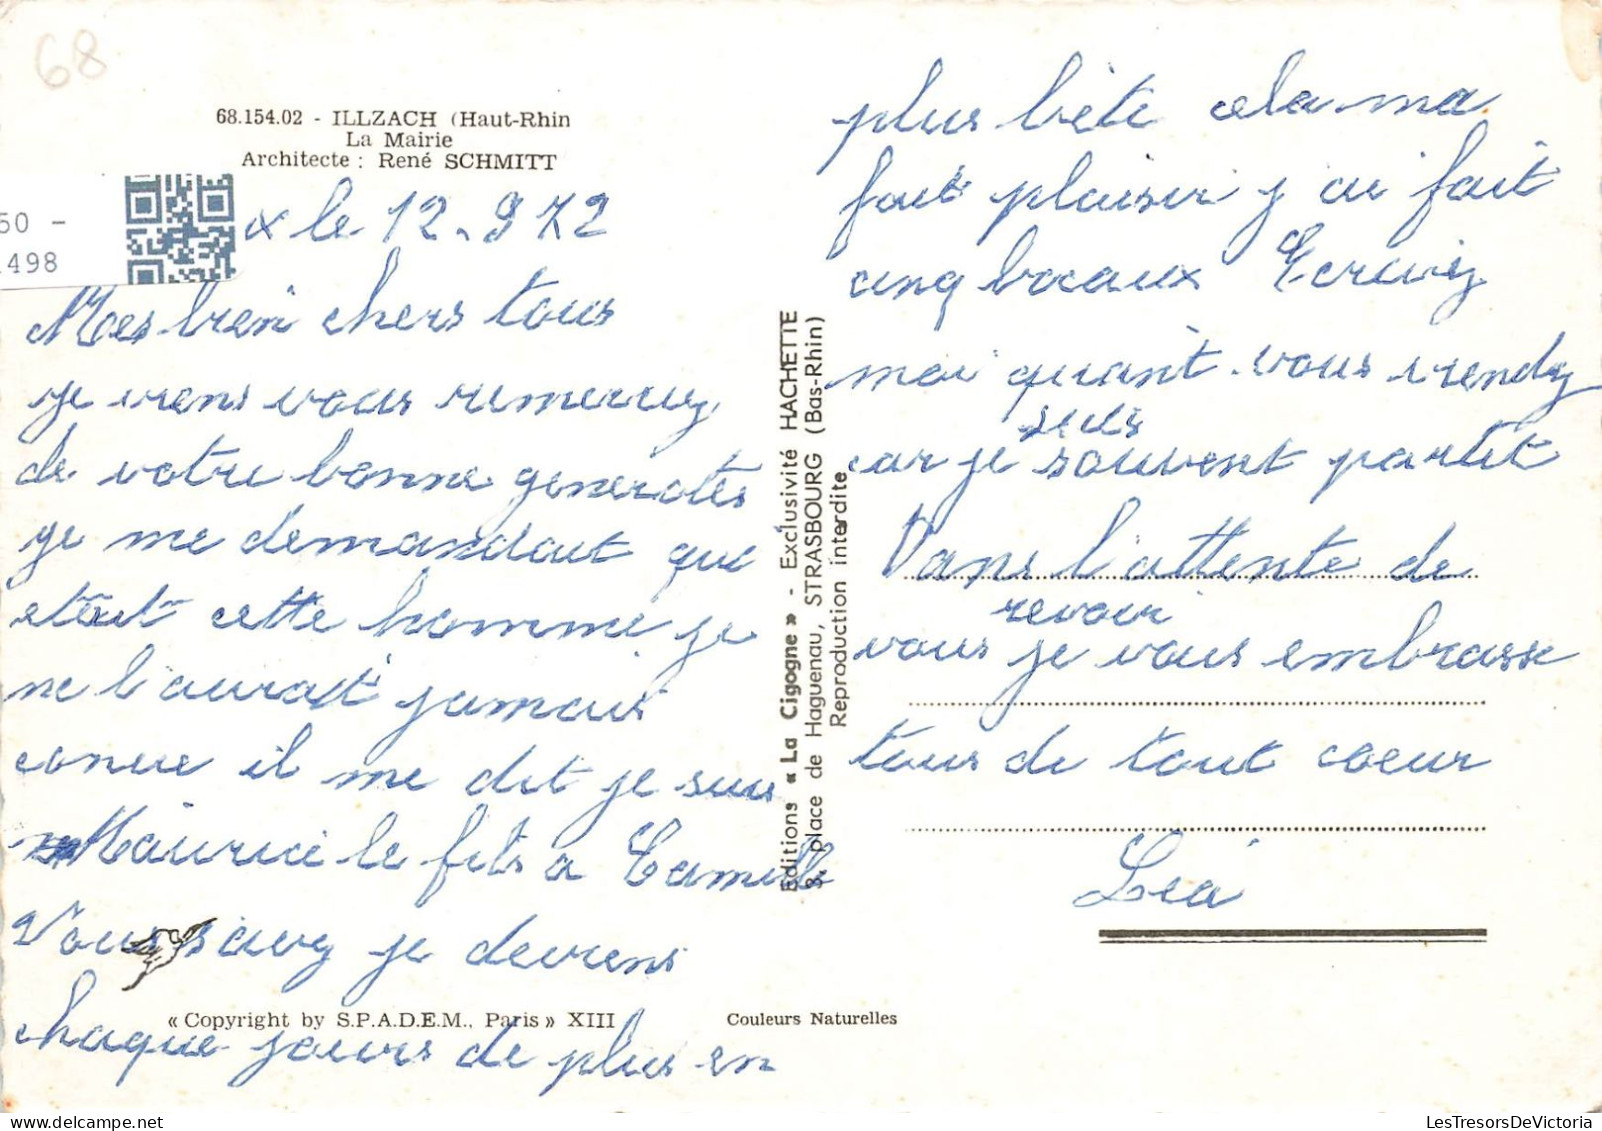 68
68.154.02 - ILLZACH (Haut-Rhin
La Mairie
Architecte : René SCHMITT
50 -
.498
x le 12.972
Mes bien chers tous
je viens vous remerciez
de votre bonne generotes
je me demandait qui
etait cette homme je
ne l'aurait jamais
conue il me dit je suis
Maurice le fils a Camille
Vous savez je deviens
chaque jours de plus en
« Copyright by S.P.A.D.E.M., Paris » XIII
Couleurs Naturelles
Editions « La Cigogne » - Exclusivité HACHETTE
8, place de Haguenau, STRASBOURG (Bas-Rhin)
Reproduction interdite
plus bête cela ma
fait plaisir j ai fait
cinq bocaux Ecrivez
moi quant vous viendez
suis
car je souvent partit
Dans l'attente de
revoir
vous je vous embrasse
tous de tout coeur
Léa
LesTresorsDeVictoria